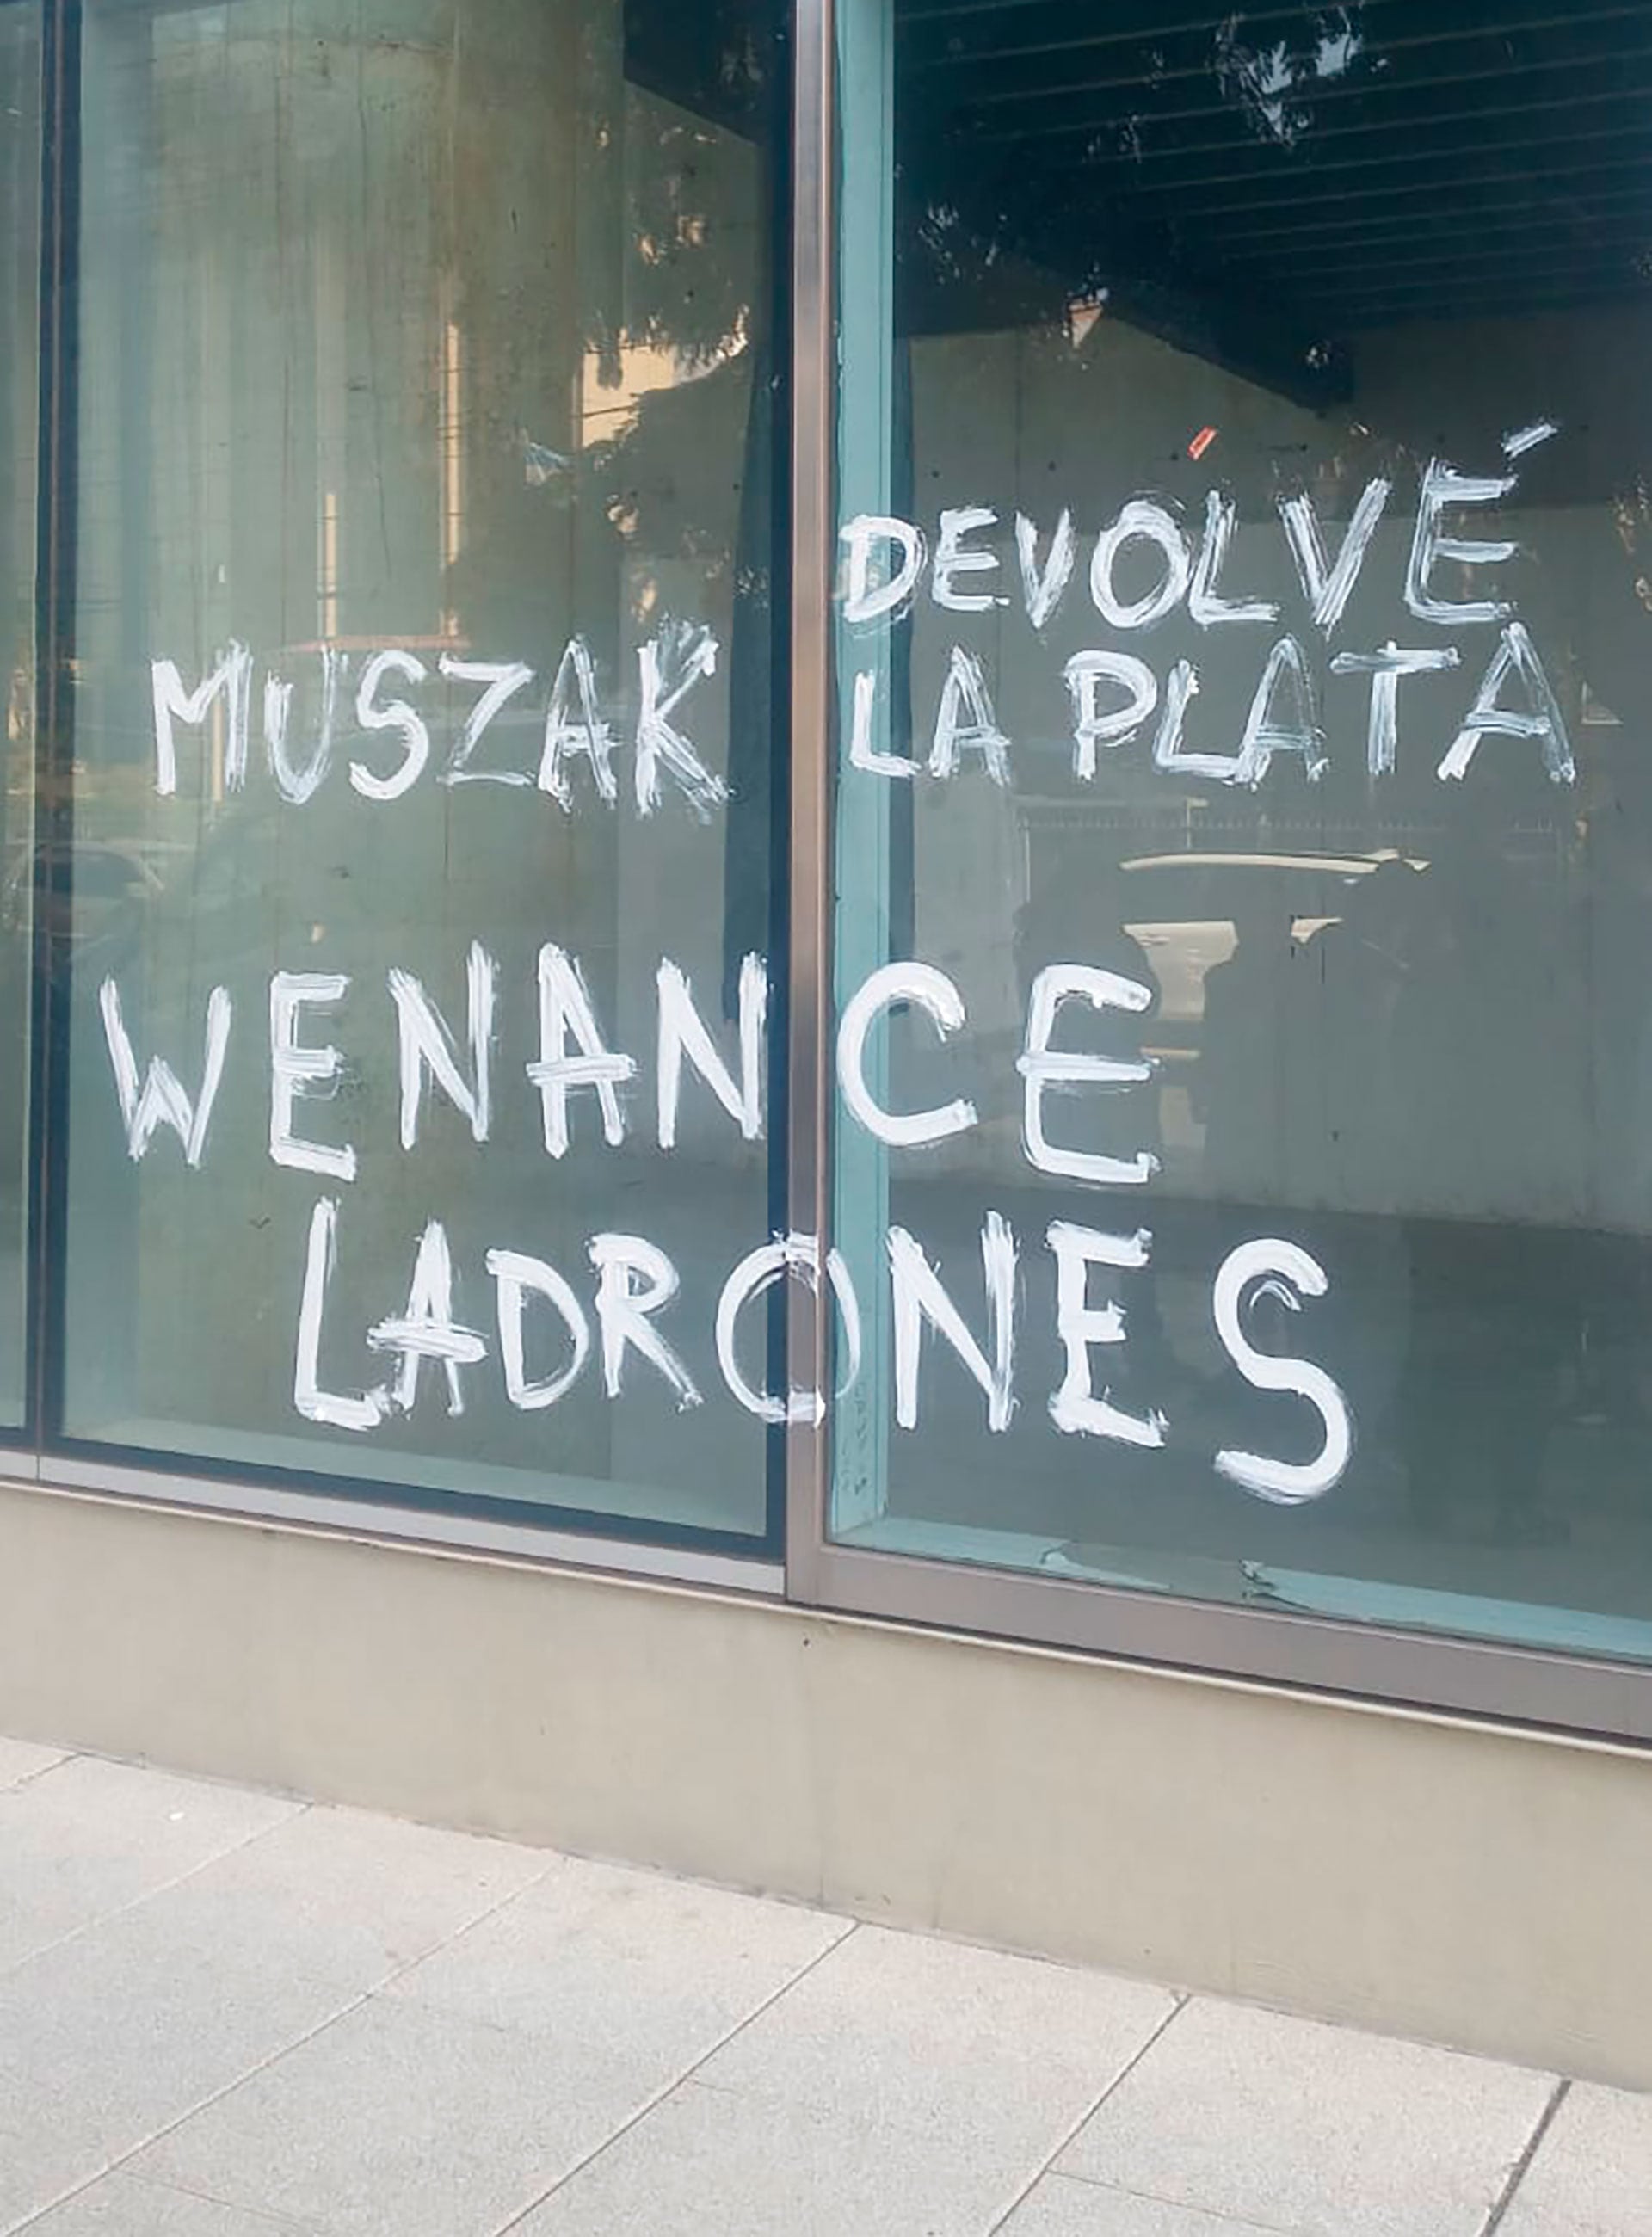 MUSZAK DEVOLVÉ
LA PLATA
WENANCE
LADRONES